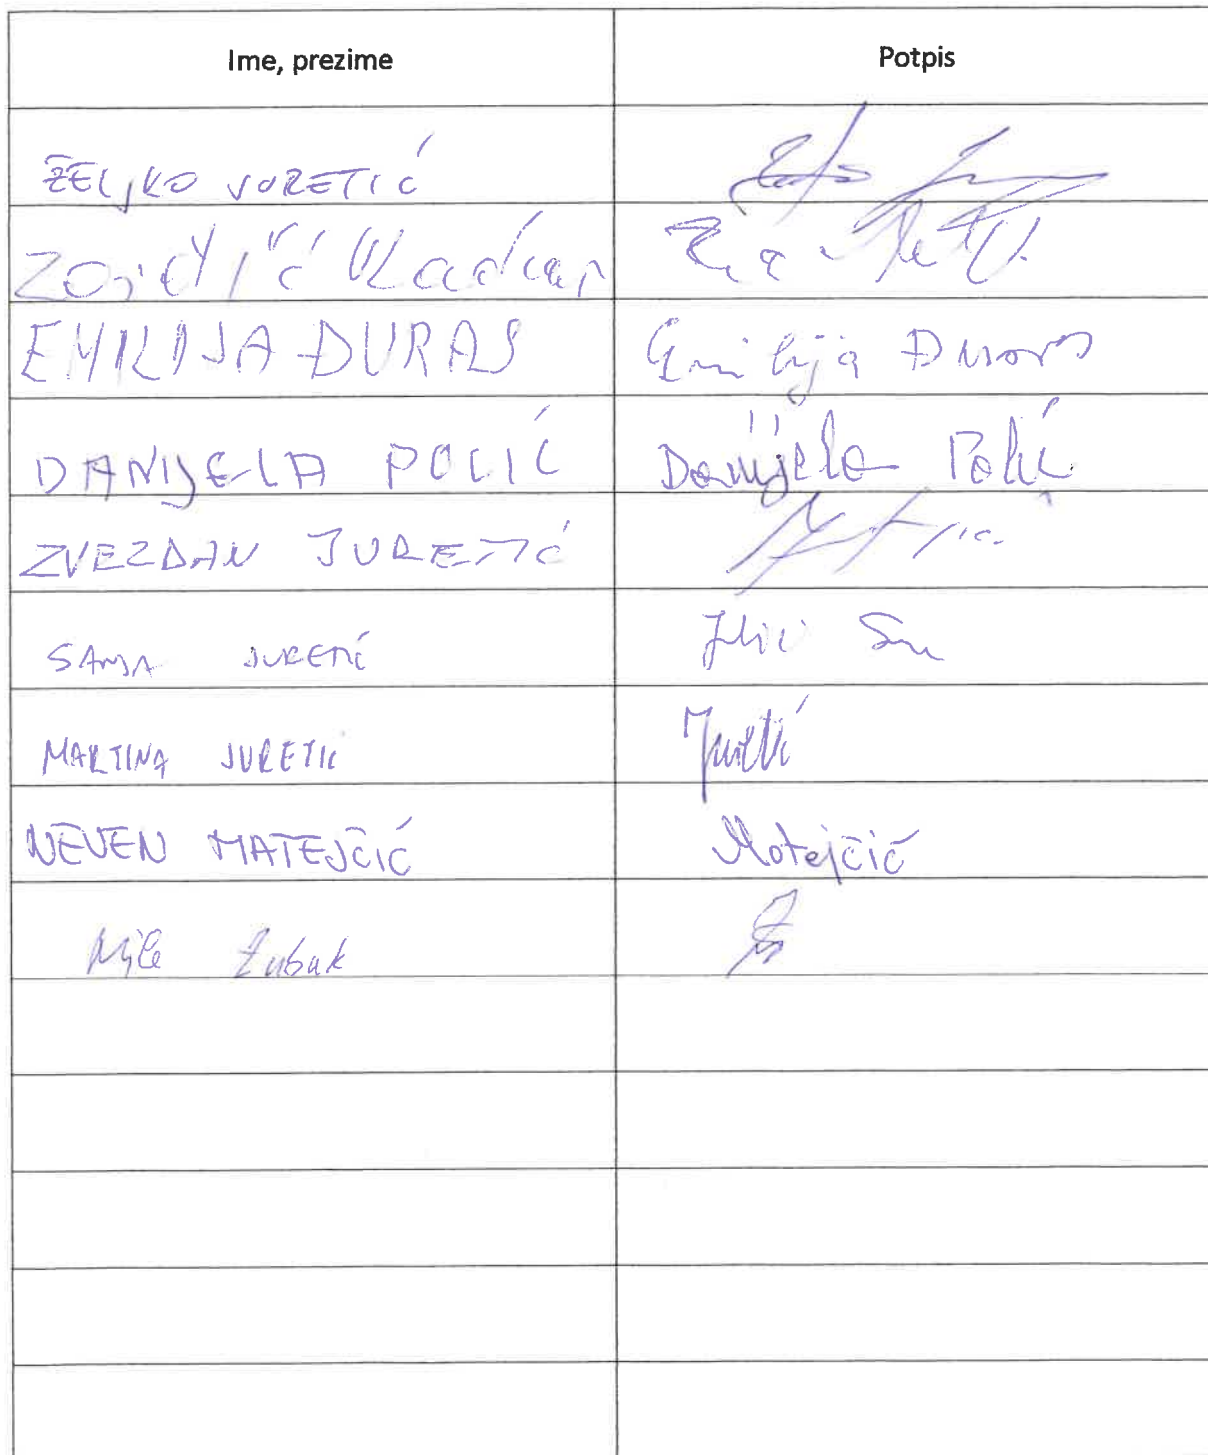 Ime, prezime Potpis
ŽELJKO JURETIĆ
EMILIJA ĐURAS Emilija Đuras
DANIJELA POLIĆ Danijela Polić
ZVEZDAN JURETIĆ
SANJA JURETIĆ
MARTINA JURETIĆ Juretić
NEVEN MATEJČIĆ Matejčić
Mile Zubak